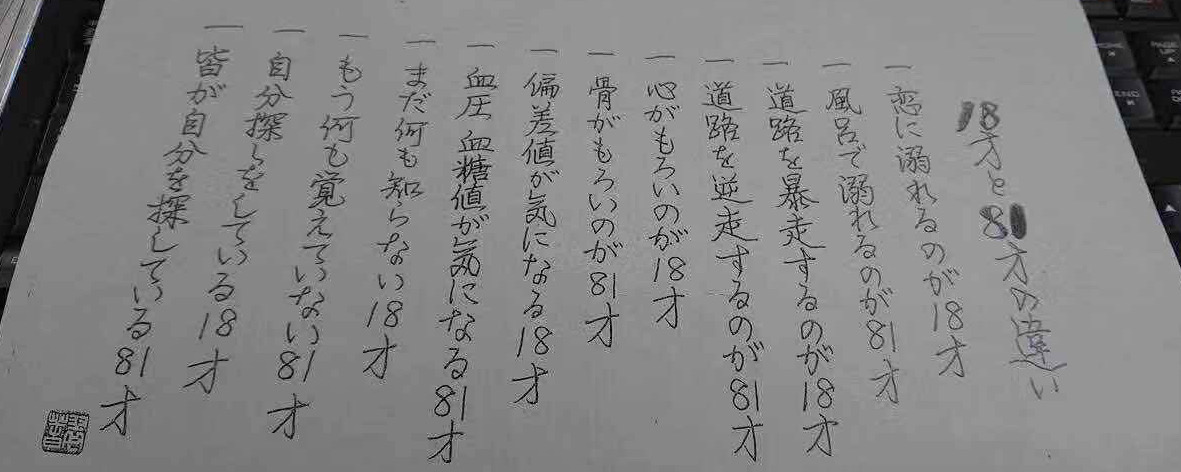 18才と81才の違い
一 恋に溺れるのが18才
一 風呂で溺れるのが81才
一 道路を暴走するのが18才
一 道路を逆走するのが81才
一 心がもろいのが18才
一 骨がもろいのが81才
一 偏差値が気になる18才
一 血圧 血糖値が気になる81才
一 まだ何も知らない18才
一 もう何も覚えていない81才
一 自分探しをしている18才
一 皆が自分を探している81才
END